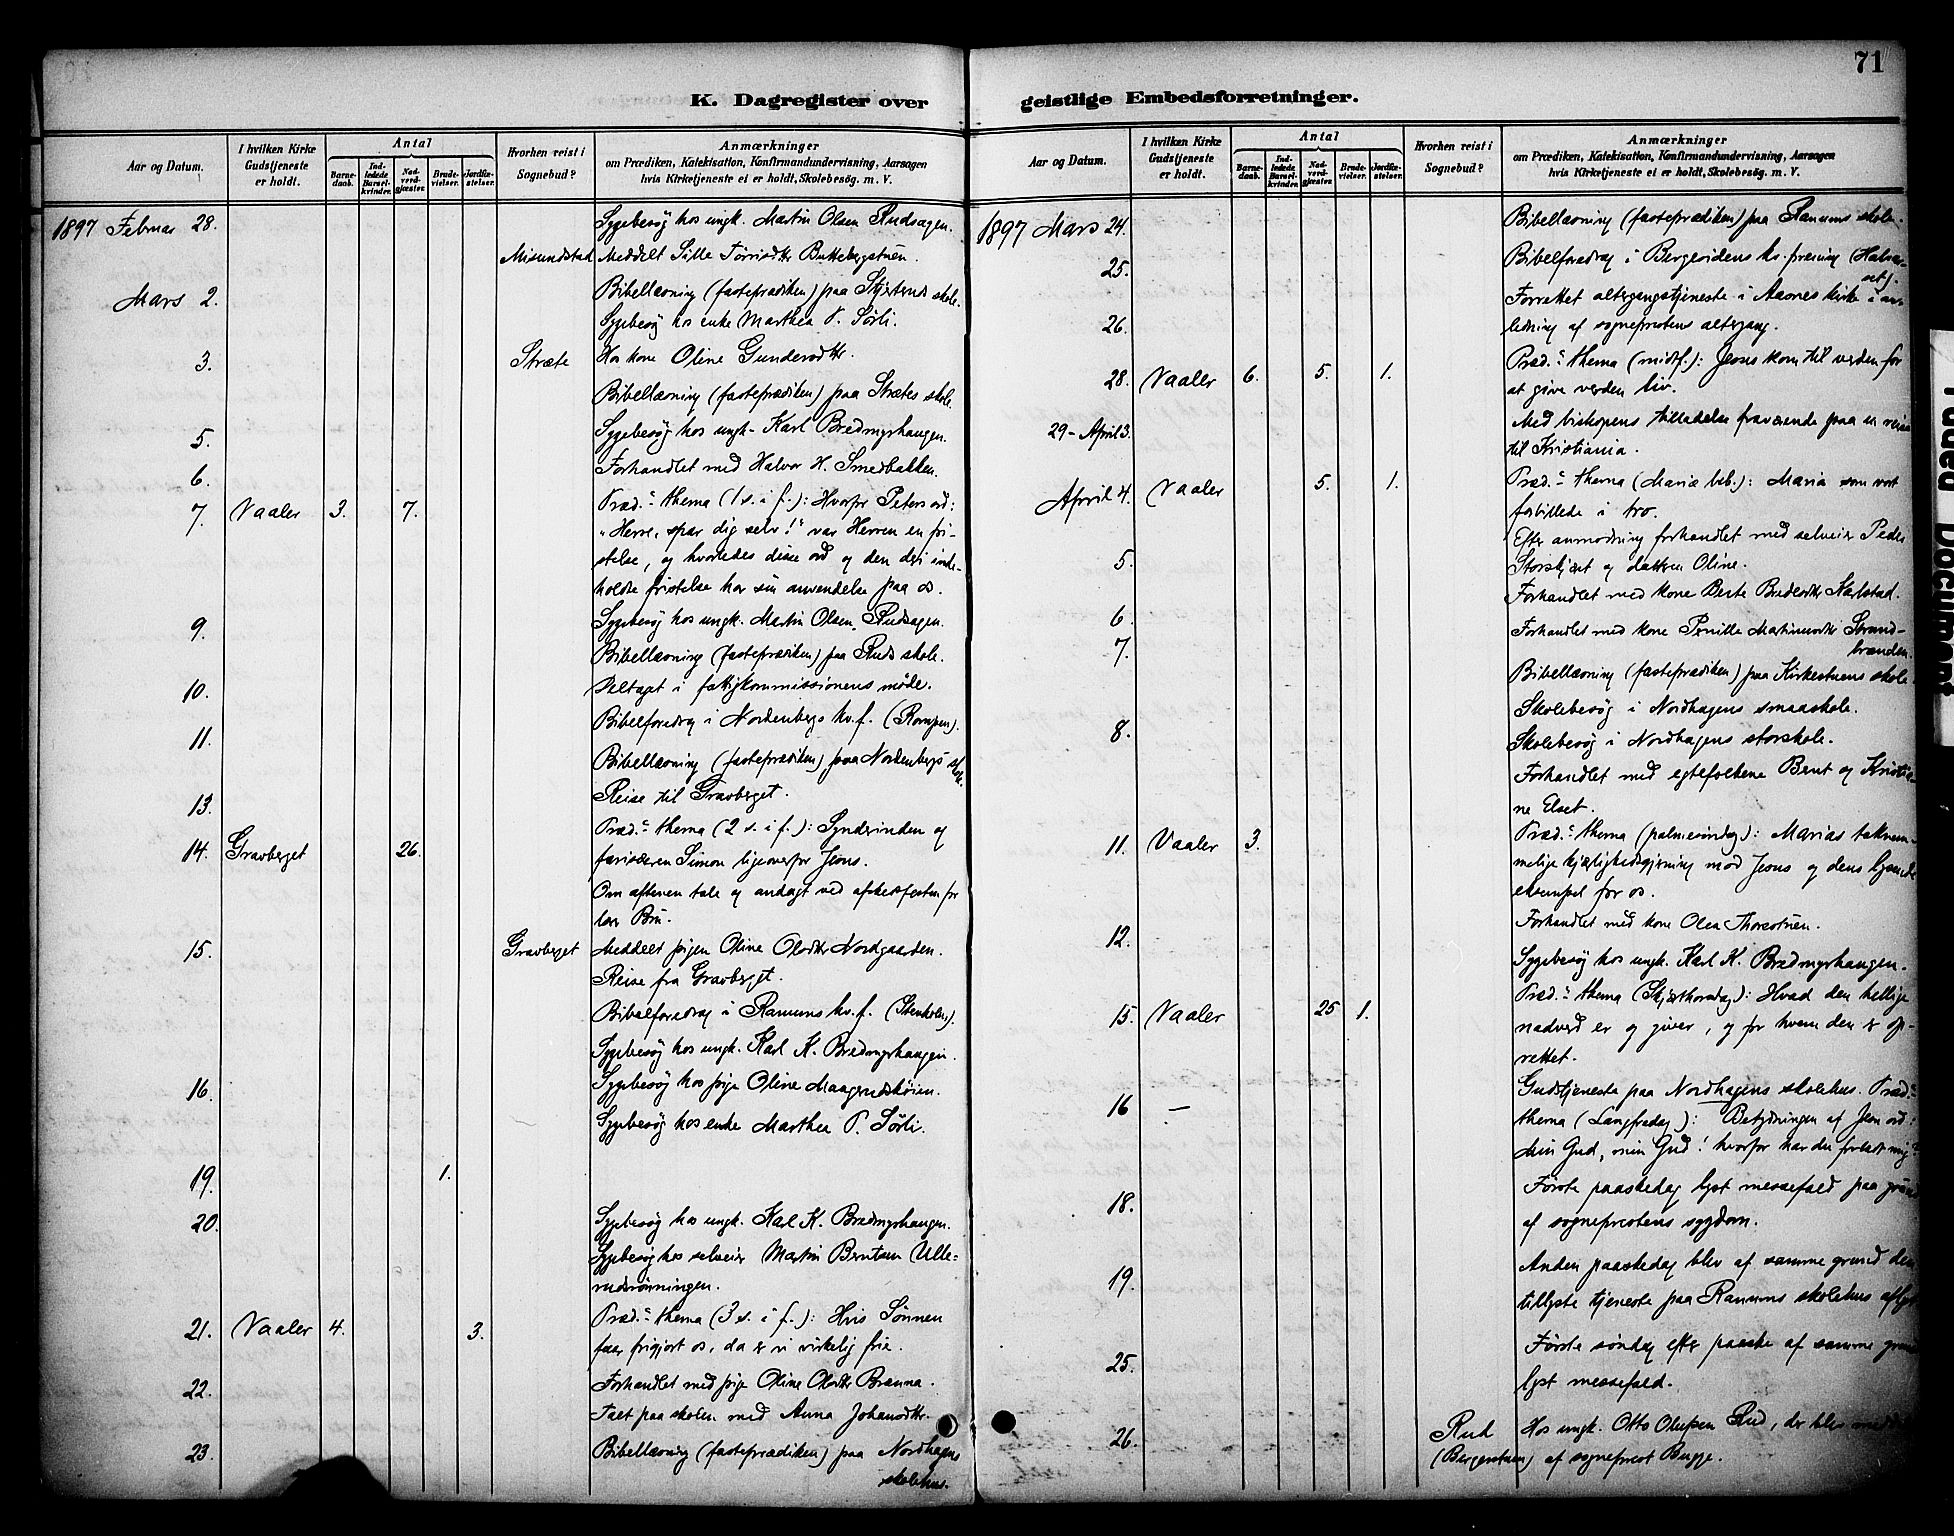 71
K. Dagregister over geistlige Embedsforretninger.
Aar og Datum.
I hvilken Kirke Gudstjeneste er holdt.
Antal
Barnedaab.
Indledede Barselkvinder.
Nadverdgjæster.
Brudevielser.
Jordfæstelser.
Hvorhen reist i Sognebud?
Anmærkninger
om Prædiken, Katekisation, Konfirmandundervisning, Aarsagen
hvis Kirketjeneste ei er holdt, Skolebesøg. m. V.
1897 Februar 28. Sygebesøg hos ungk. Martin Olsen Rudsagen.
Misundstad Meddelt Sille Tørrisdtr Buttebergstuen.
Mars 2. Bibellæsning (fasteprædiken) paa skole.
Sygebesøg hos enke Marthea P. Sørli.
3. Stræte Hos kone Oline Gundersdtr.
Bibellæsning (fasteprædiken) paa Strætes skole.
5. Sygebesøg hos ungk. Karl Brædmyrhaugen.
6. Forhandlet med Halvor H. Smedbakken.
7. Vaaler 3. 7. Præd.s thema (1 s. i f.): Hvorfor Peters ord:
"Herre, spar dig selv!" var Herren en fri-
stelse, og hvorledes disse ord og den deri inde-
holdte fristelse har sin anvendelse paa os.
9. Sygebesøg hos ungk. Martin Olsen Rudsagen.
Bibellæsning (fasteprædiken) paa Ruds skole.
10. Deltaget i fattigkommissionens møde.
Bibelforedrag i Nordenbergs kv.f. (Rompen).
11. Bibellæsning (fasteprædiken) paa Nordenbergs skole.
13. Reise til Gravberget.
14. Gravberget 26. Præd.s thema (2 s. i f.): Synderinden og
farisæeren Simon ligeoverfor Jesus.
Om aftenen tale og andagt ved afskedsfesten for
lær. Bru.
15. Gravberget Meddelt pigen Oline Olsdtr Nordgaarden.
Reise fra Gravberget.
Bibelforedrag i Ranums kv.f. (Stenholen).
Sygebesøg hos ungk. Karl K. Brædmyrhaugen.
16. Sygebesøg hos pige Oline
Sygebesøg hos enke Marthea P. Sørli.
19. 1.
20. Sygebesøg hos ungk. Karl K. Brædmyrhaugen.
Sygebesøg hos selveier Martin Berntsen Ulle-
rudsrønningen.
21. Vaaler 4. 3. Præd.s thema (3 s. i f.): Hvis Sønnen
faar frigjort os, da er vi virkelig frie.
22. Forhandlet med pige Oline Olsdtr Brænna.
Talt paa skolen med Anna Johansdtr.
23. Bibellæsning (fasteprædiken) paa Nordhagens
skolehus.
Aar og Datum.
I hvilken Kirke Gudstjeneste er holdt.
Antal
Barnedaab.
Indledede Barselkvinder.
Nadverdgjæster.
Brudevielser.
Jordfæstelser.
Hvorhen reist i Sognebud?
Anmærkninger
om Prædiken, Katekisation, Konfirmandundervisning, Aarsagen
hvis Kirketjeneste ei er holdt, Skolebesøg. m. V.
1897 Mars 24. Bibellæsning (fasteprædiken) paa Ranums skole.
25. Bibelforedrag i Bergesidens kv.forening (Halvor-
set).
26. Forrettet altergangstjeneste i Aasnes kirke i an-
ledning af sogneprestens altergang.
28. Vaaler 6. 5. 1. Præd.s thema (midtf.): Jesus kom til verden for
at give verden liv.
29-April 3. Med biskopens tilladelse fraværende paa en reise
til Kristiania.
April 4. Vaaler 5. 1. Præd.s thema (Mariæ beb.): Maria som vort
forbillede i tro.
5. Efter anmodning forhandlet med selveier Peder
Storskjæret og datteren Oline.
6. Forhandlet med kone Berte Karlstad.
7. Forhandlet med kone Pernille Martinusdtr Strand-
brænden.
Bibellæsning (fasteprædiken) paa Kirkestuens skole.
8. Skolebesøg i Nordhagens smaaskole.
Skolebesøg i Nordhagens storskole.
Forhandlet med egtefolkene Bernt og Kristia-
ne Elset.
11. Vaaler 3. Præd.s thema (palmesøndag): Marias taknem-
melige kjærlighedsgjerning mod Jesus og dens lysende
eksempel for os.
12. Forhandlet med kone Olea Thorestuen.
Sygebesøg hos ungk. Karl K. Brædmyrhaugen.
15. Vaaler 25 1. Præd.s thema (Skjærthorsdag): Hvad den hellige
nadverd er og giver, og for hvem den er op-
rettet.
16 — Gudstjeneste paa Nordhagens skolehus. Præd.s
thema (Langfredag): Betydningen af Jesu ord:
Min Gud, min Gud! hvorfor har du forladt mig?
18. Første paaskedag lyst messefald paa grund
af sogneprestens sygdom.
19. Anden paaskedag blev af samme grund den
tillyste tjeneste paa Ranums skolehus aflyst
25. Første søndag efter paaske af samme grund
lyst messefald.
26. Rud Hos ungk. Otto Olufsen Rud, der blev meddelt
(Bergerstuen) af sogneprest Bugge.